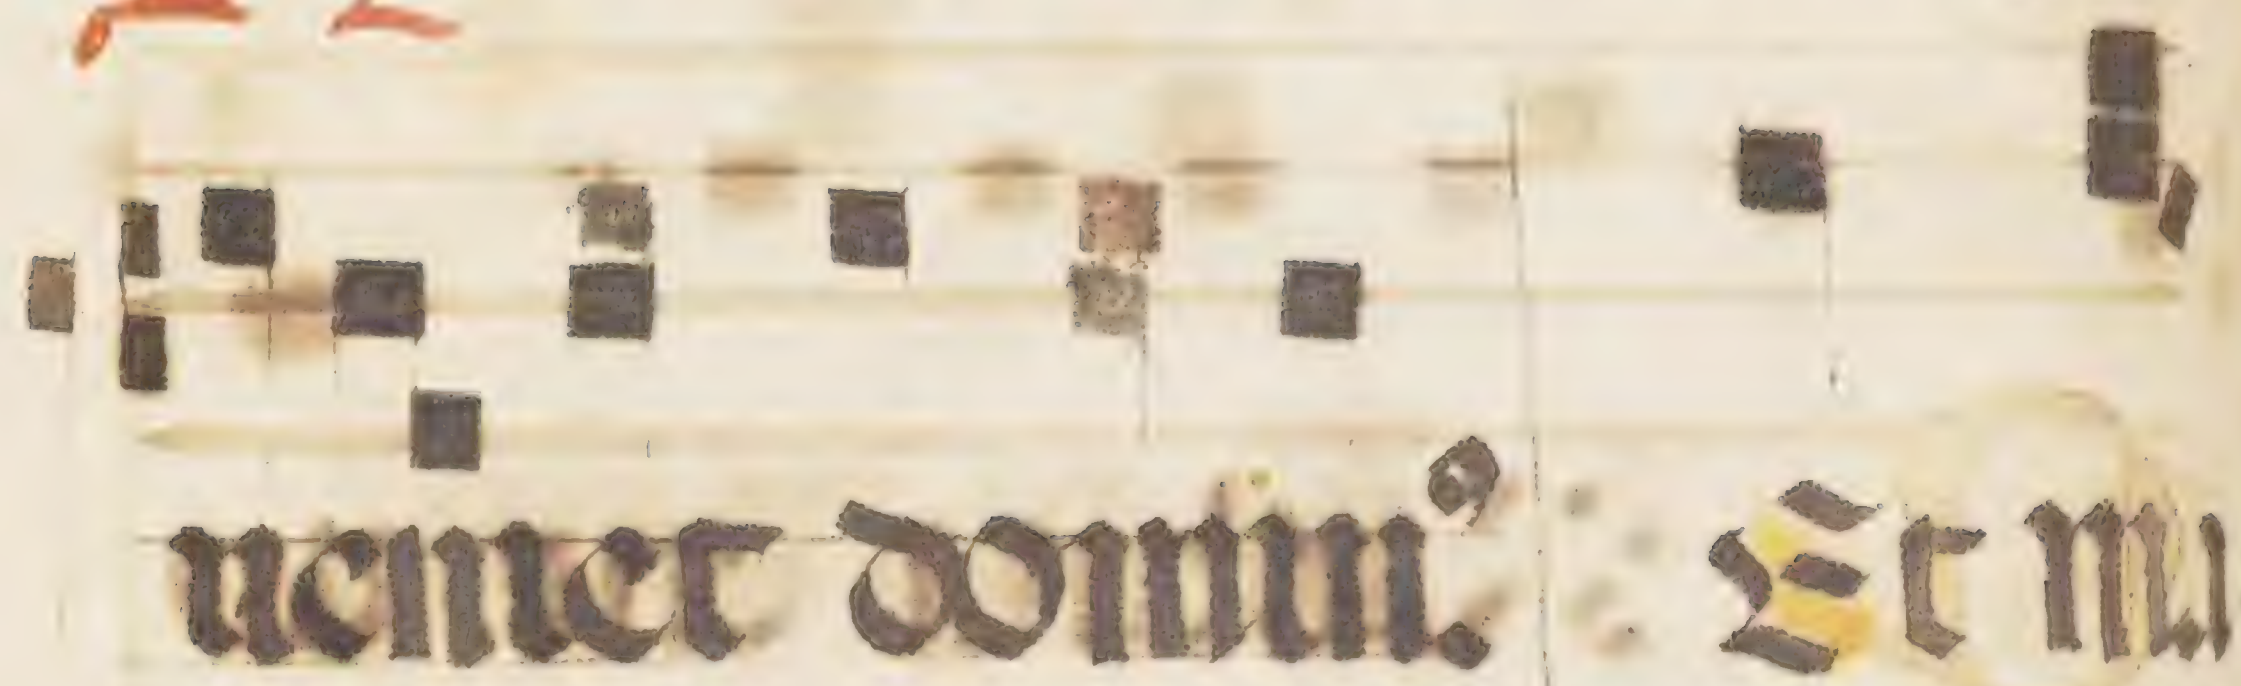 ueniet dominꝰ. Et mi